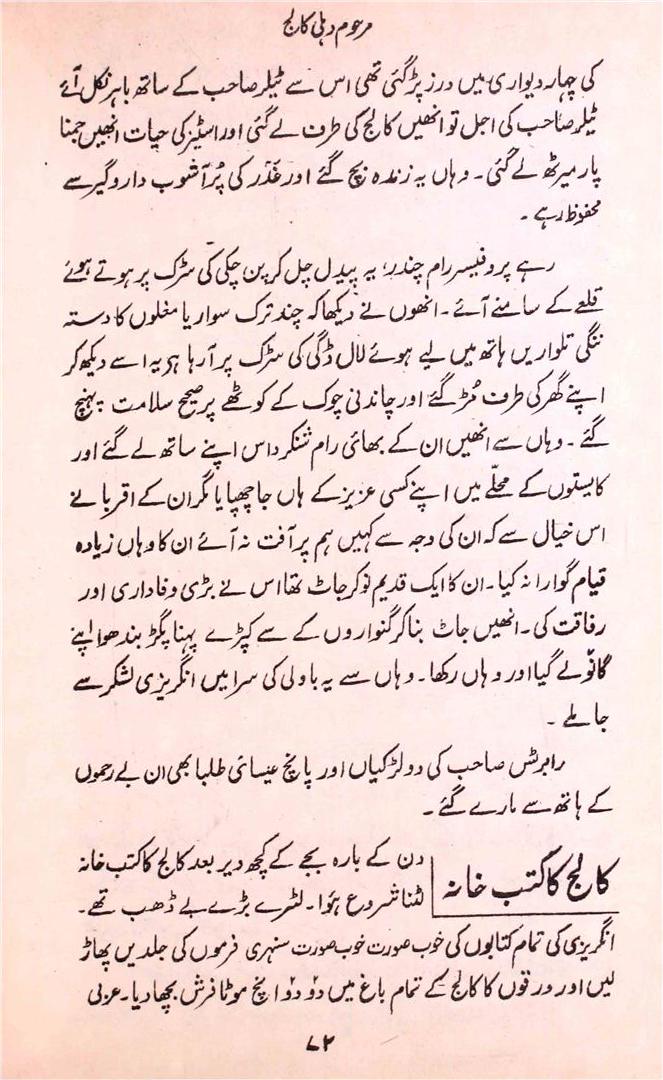 مرحوم دہلی کالج
کی چہار دیواری میں درز پڑ گئی تھی اس سے ٹیلر صاحب کے ساتھ باہر نکل آئے
ٹیلر صاحب کی اجل تو انھیں کالج کی طرف لے گئی اور اسٹیز کی حیات انھیں جمنا
پار میرٹھ لے گئی۔ وہاں یہ زندہ بچ گئے اور غدر کی پُر آشوب دار و گیر سے
محفوظ رہے۔
رہے پروفیسر رام چندر، یہ پیدل چل کر پن چکی کی سڑک پر ہوتے ہوئے
قلعے کے سامنے آئے۔ انھوں نے دیکھا کہ چند ترک سوار یا مغلوں کا دستہ
ننگی تلواریں ہاتھ میں لیے ہوئے لال ڈگی کی سڑک پر آرہا ہے یہ اسے دیکھ کر
اپنے گھر کی طرف مُڑ گئے اور چاندنی چوک کے کوٹھے پر صحیح سلامت پہنچ
گئے۔ وہاں سے انھیں ان کے بھائی رام شنکر داس اپنے ساتھ لے گئے اور
کایستوں کے محلّے میں اپنے کسی عزیز کے ہاں جا چھپایا مگر ان کے اقربا نے
اس خیال سے کہ ان کی وجہ سے کہیں ہم پر آفت نہ آئے ان کا وہاں زیادہ
قیام گوارا نہ کیا۔ ان کا ایک قدیم نوکر جاٹ تھا اس نے بڑی وفاداری اور
رفاقت کی۔ انھیں جاٹ بنا کر گنواروں کے سے کپڑے پہنا پگڑ بندھوا اپنے
گانوْ لے گیا اور وہاں رکھا۔ وہاں سے یہ باولی کی سرا میں انگریزی لشکر سے
جا ملے۔
رابرٹس صاحب کی دو لڑکیاں اور پانچ عیسائی طلبا بھی ان بے رحموں
کے ہاتھ سے مارے گئے۔
کالج کا کتب خانہ
دن کے بارہ بجے کے کچھ دیر بعد کالج کا کتب خانہ
لٹنا شروع ہؤا۔ لٹیرے بڑے بے ڈھب تھے۔
انگریزی کی تمام کتابوں کی خوب صورت خوب صورت سنہری فرموں کی جلدیں پھاڑ
لیں اور ورقوں کا کالج کے تمام باغ میں دو دو انچ موٹا فرش بچھا دیا۔ عربی
۷۲